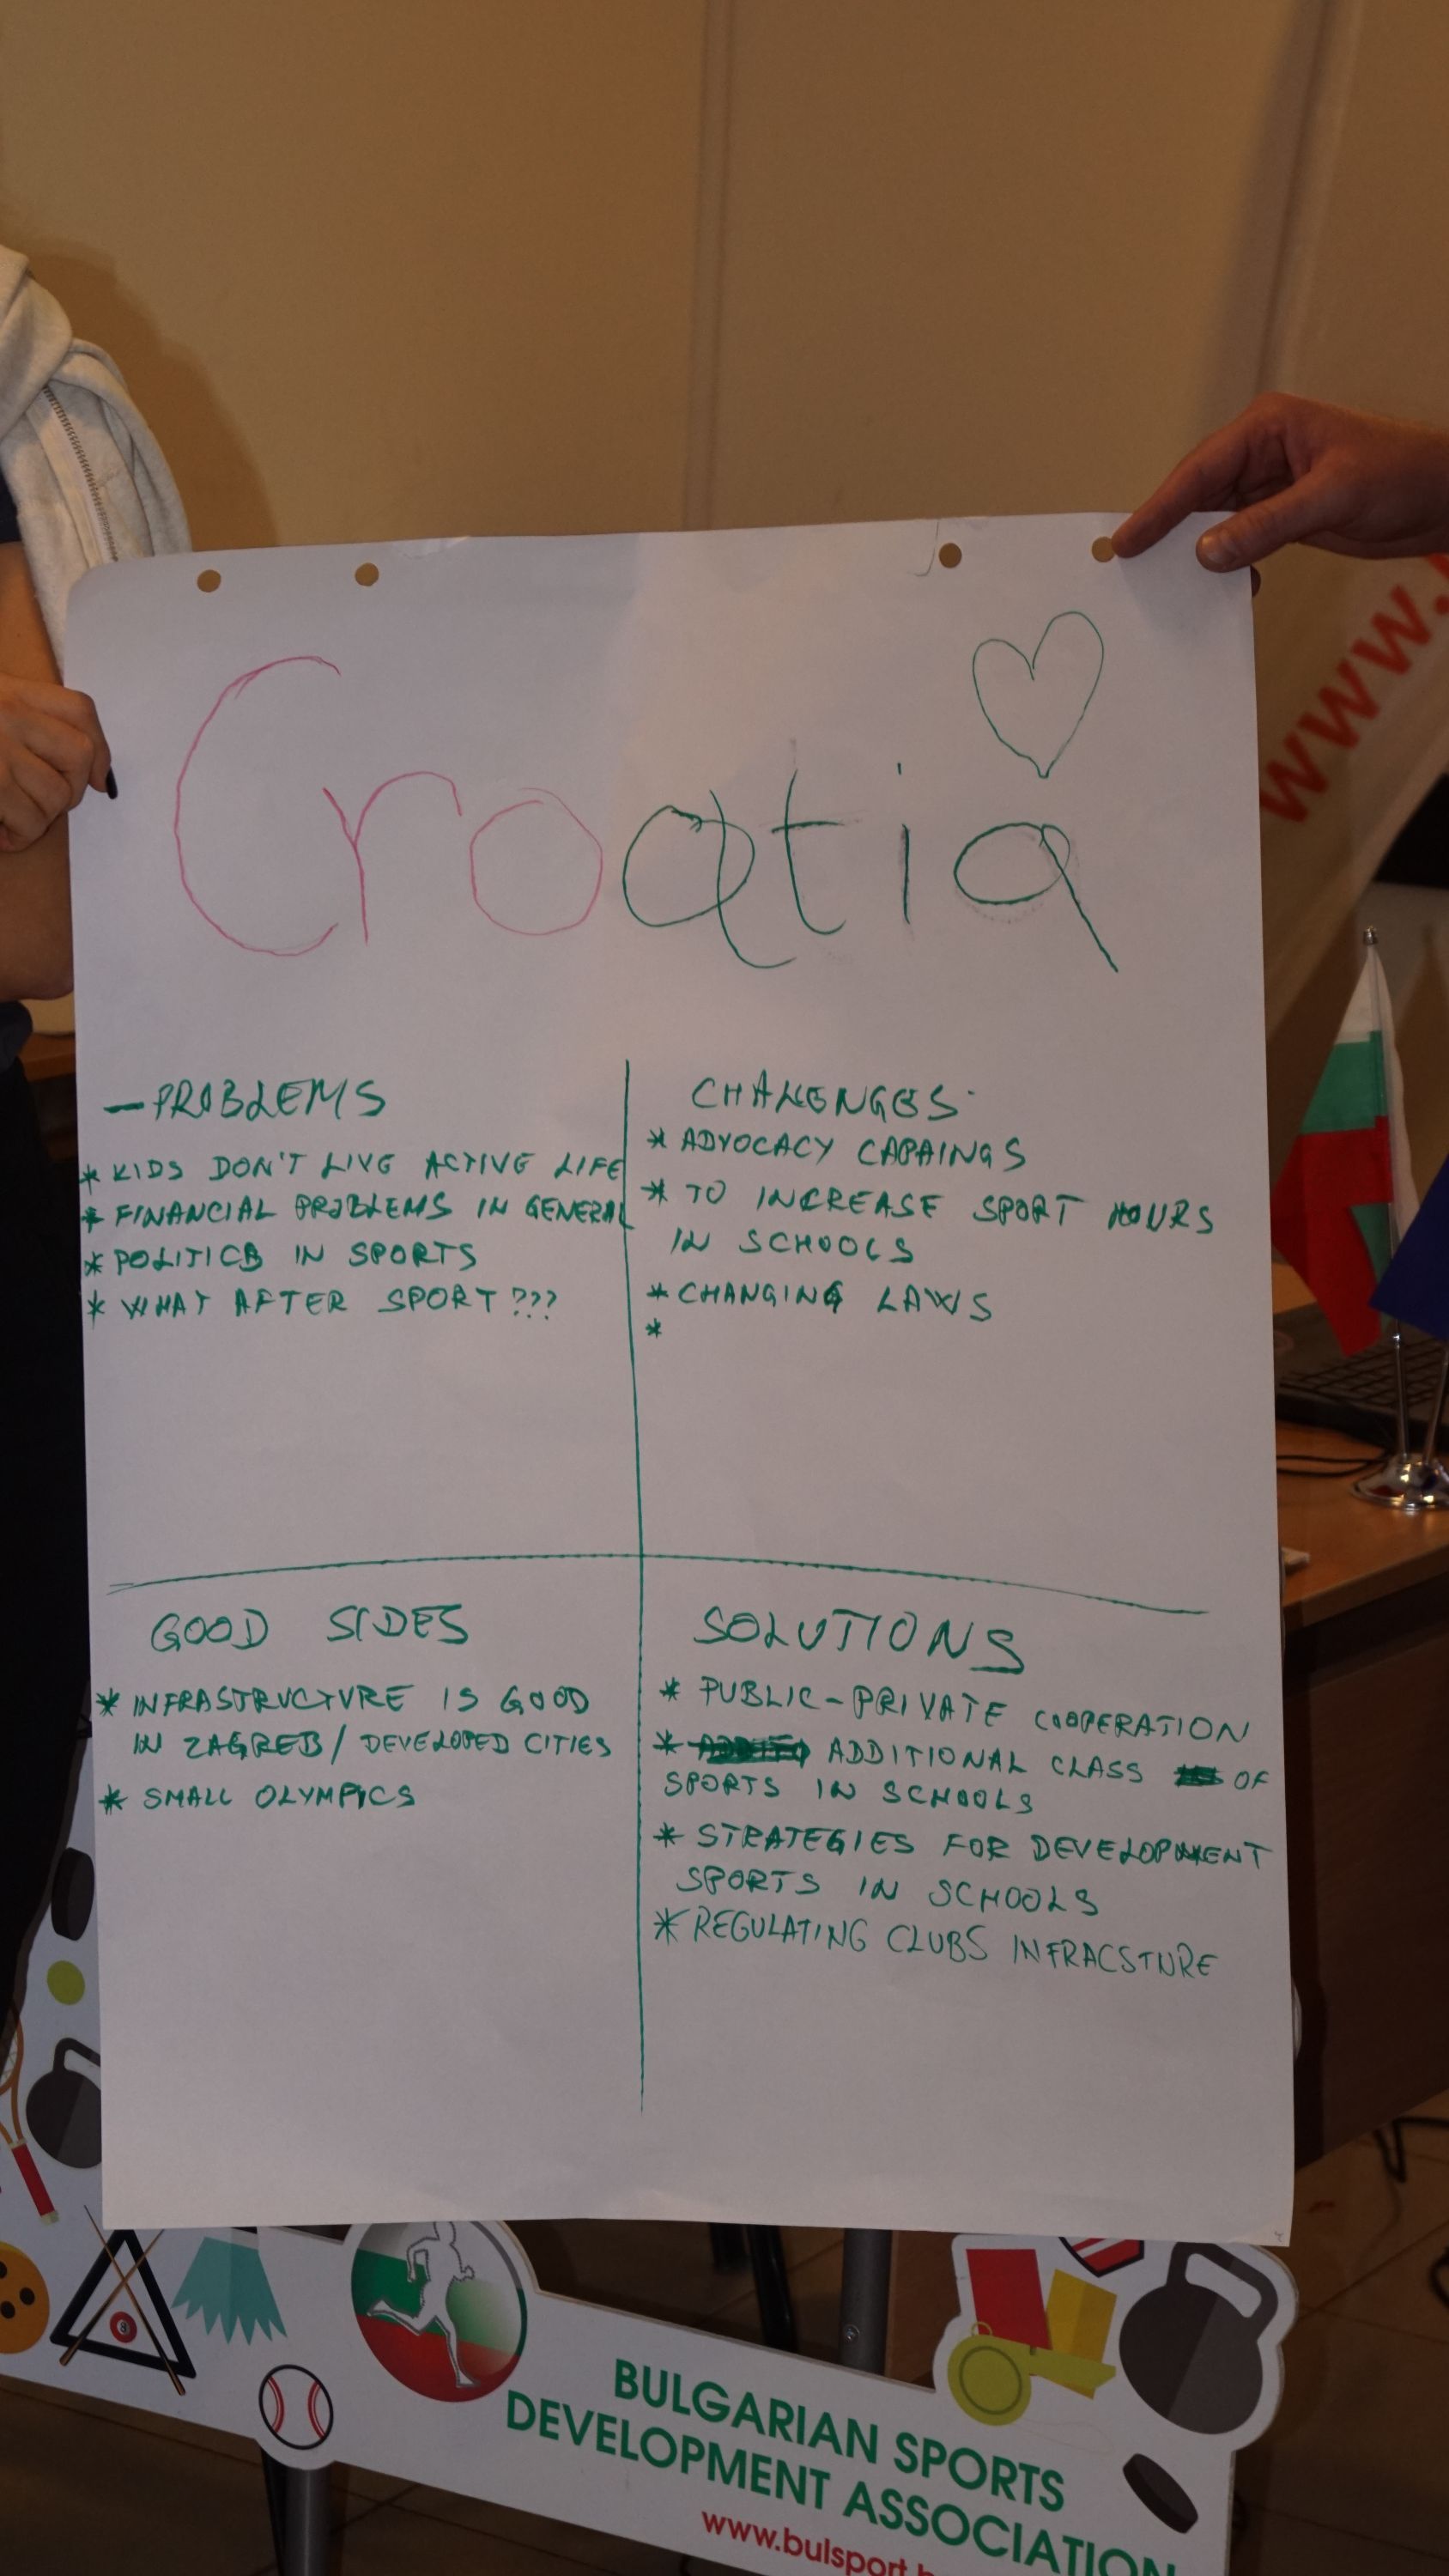 Croatia
- PROBLEMS
* KIDS DON'T LIVE ACTIVE LIFE
* FINANCIAL PROBLEMS IN GENERAL
* POLITICS IN SPORTS
* WHAT AFTER SPORT???
CHALENGES
* ADVOCACY CAPAINGS
* TO INCREASE SPORT HOURS
IN SCHOOLS
* CHANGING LAWS
*
GOOD SIDES
* INFRASTRUCTURE IS GOOD
IN ZAGREB/ DEVELOPED CITIES
* SMALL OLYMPICS
SOLUTIONS
* PUBLIC-PRIVATE COOPERATION
* ADDITIONAL CLASS OF
SPORTS IN SCHOOLS
* STRATEGIES FOR DEVELOPMENT
SPORTS IN SCHOOLS
* REGULATING CLUBS INFRACSTURE
www.
8
BULGARIAN SPORTS
DEVELOPMENT ASSOCIATION
www.bulsport.